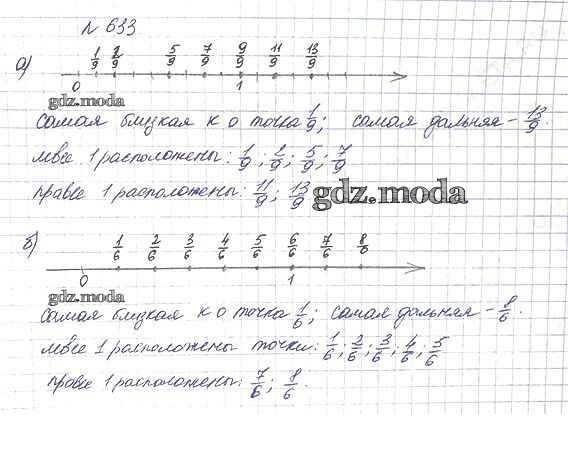 № 633
а) 1/9 2/9 5/9 7/9 9/9 11/9 13/9
0 1
gdz.moda
самая близкая к 0 точка 1/9; самая дальняя – 13/9.
левее 1 расположены: 1/9; 2/9; 5/9; 7/9
правее 1 расположены: 11/9; 13/9
gdz.moda
б) 1/6 2/6 3/6 4/6 5/6 6/6 7/6 8/6
0 1
gdz.moda
самая близкая к 0 точка 1/6; самая дальняя – 8/6.
левее 1 расположены точки: 1/6; 2/6; 3/6; 4/6; 5/6
правее 1 расположены: 7/6; 8/6.